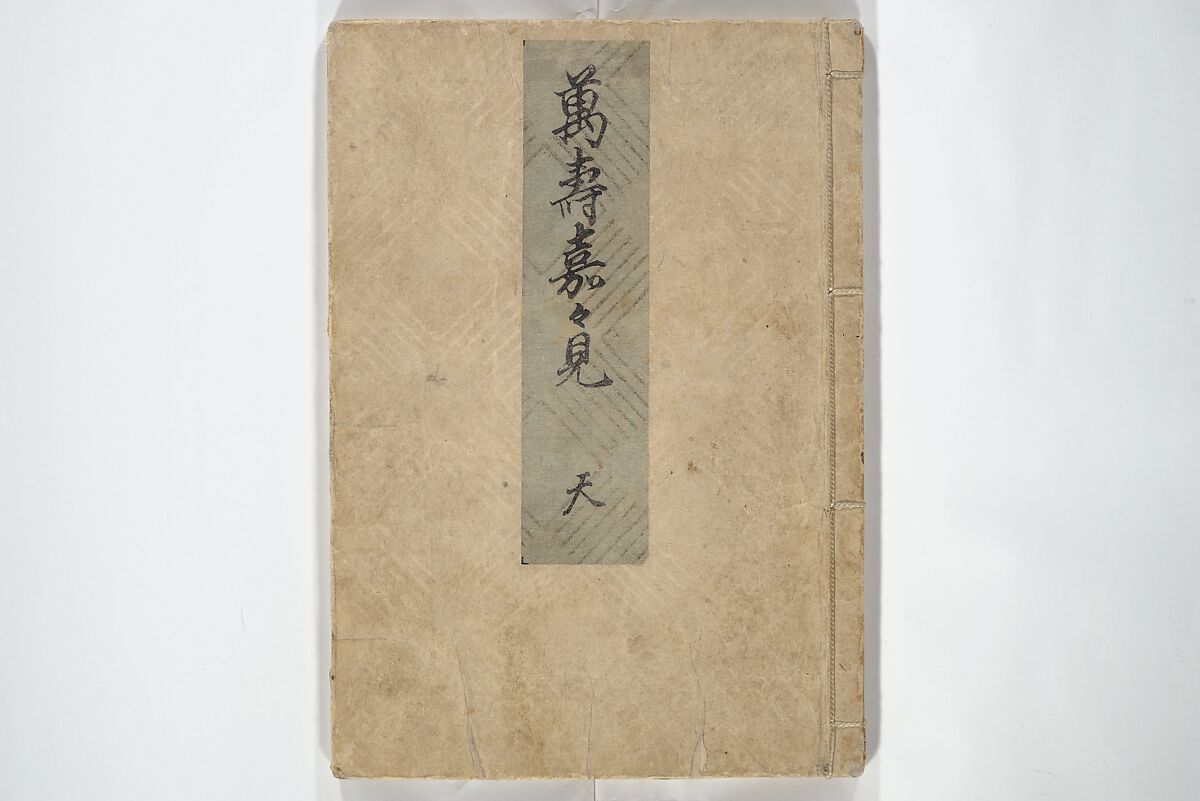 萬壽嘉々見
天